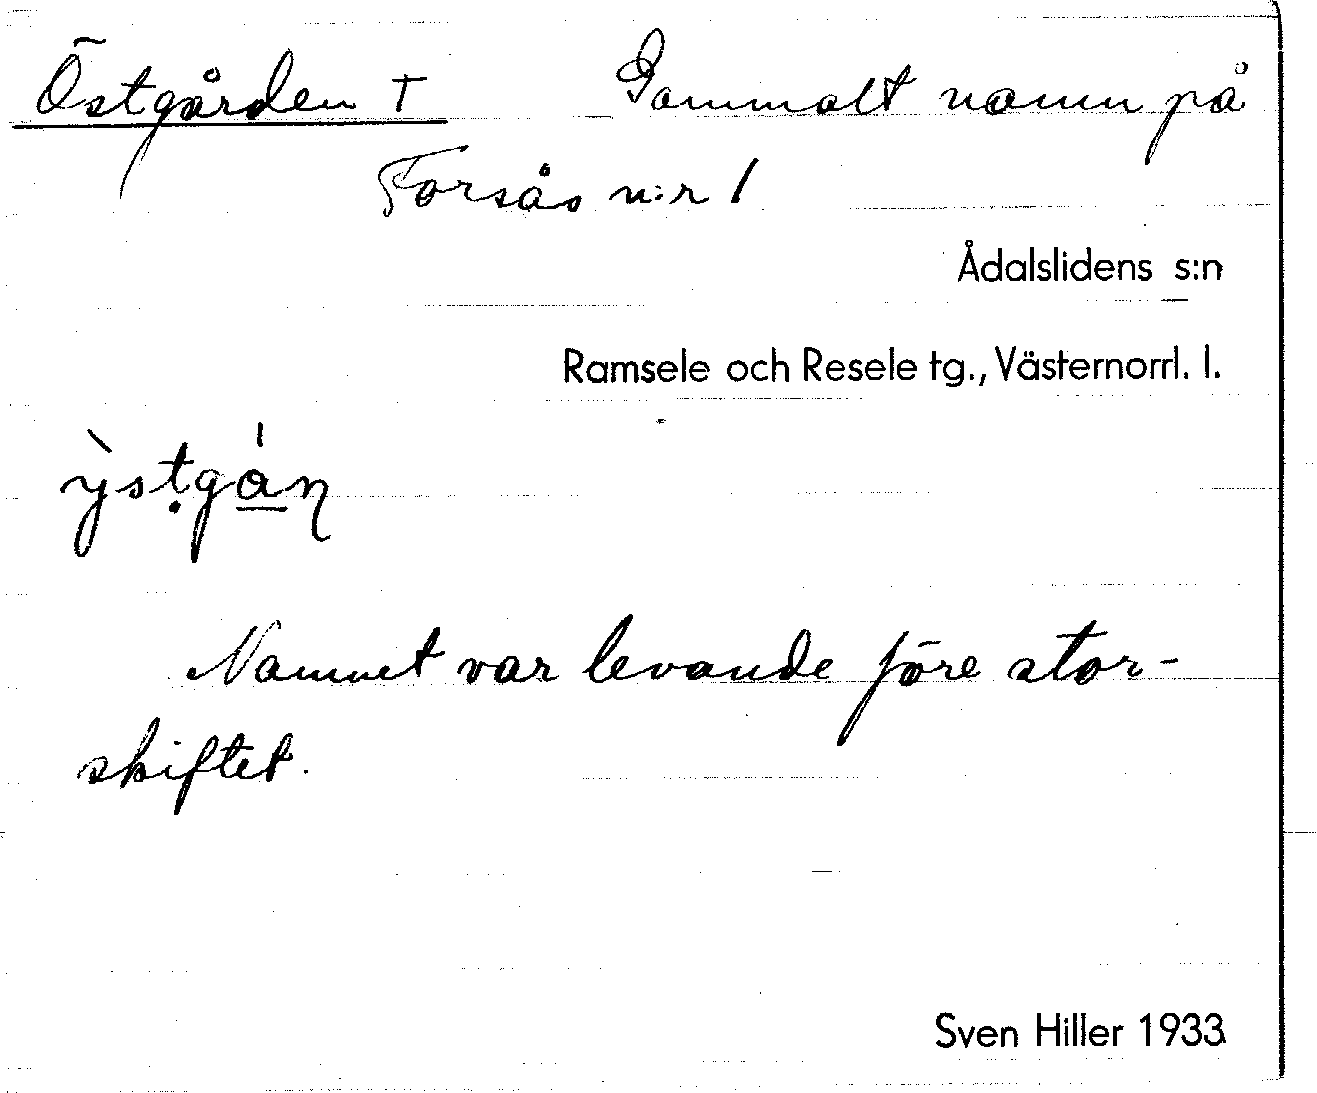 Östgården † Gammalt namn på
Forsås n:r 1
Ådalslidens s:n
Ramsele och Resele tg., Västernorrl. l.
ỳstgán
Namnet var levande före stor-
skiftet.
Sven Hiller 1933